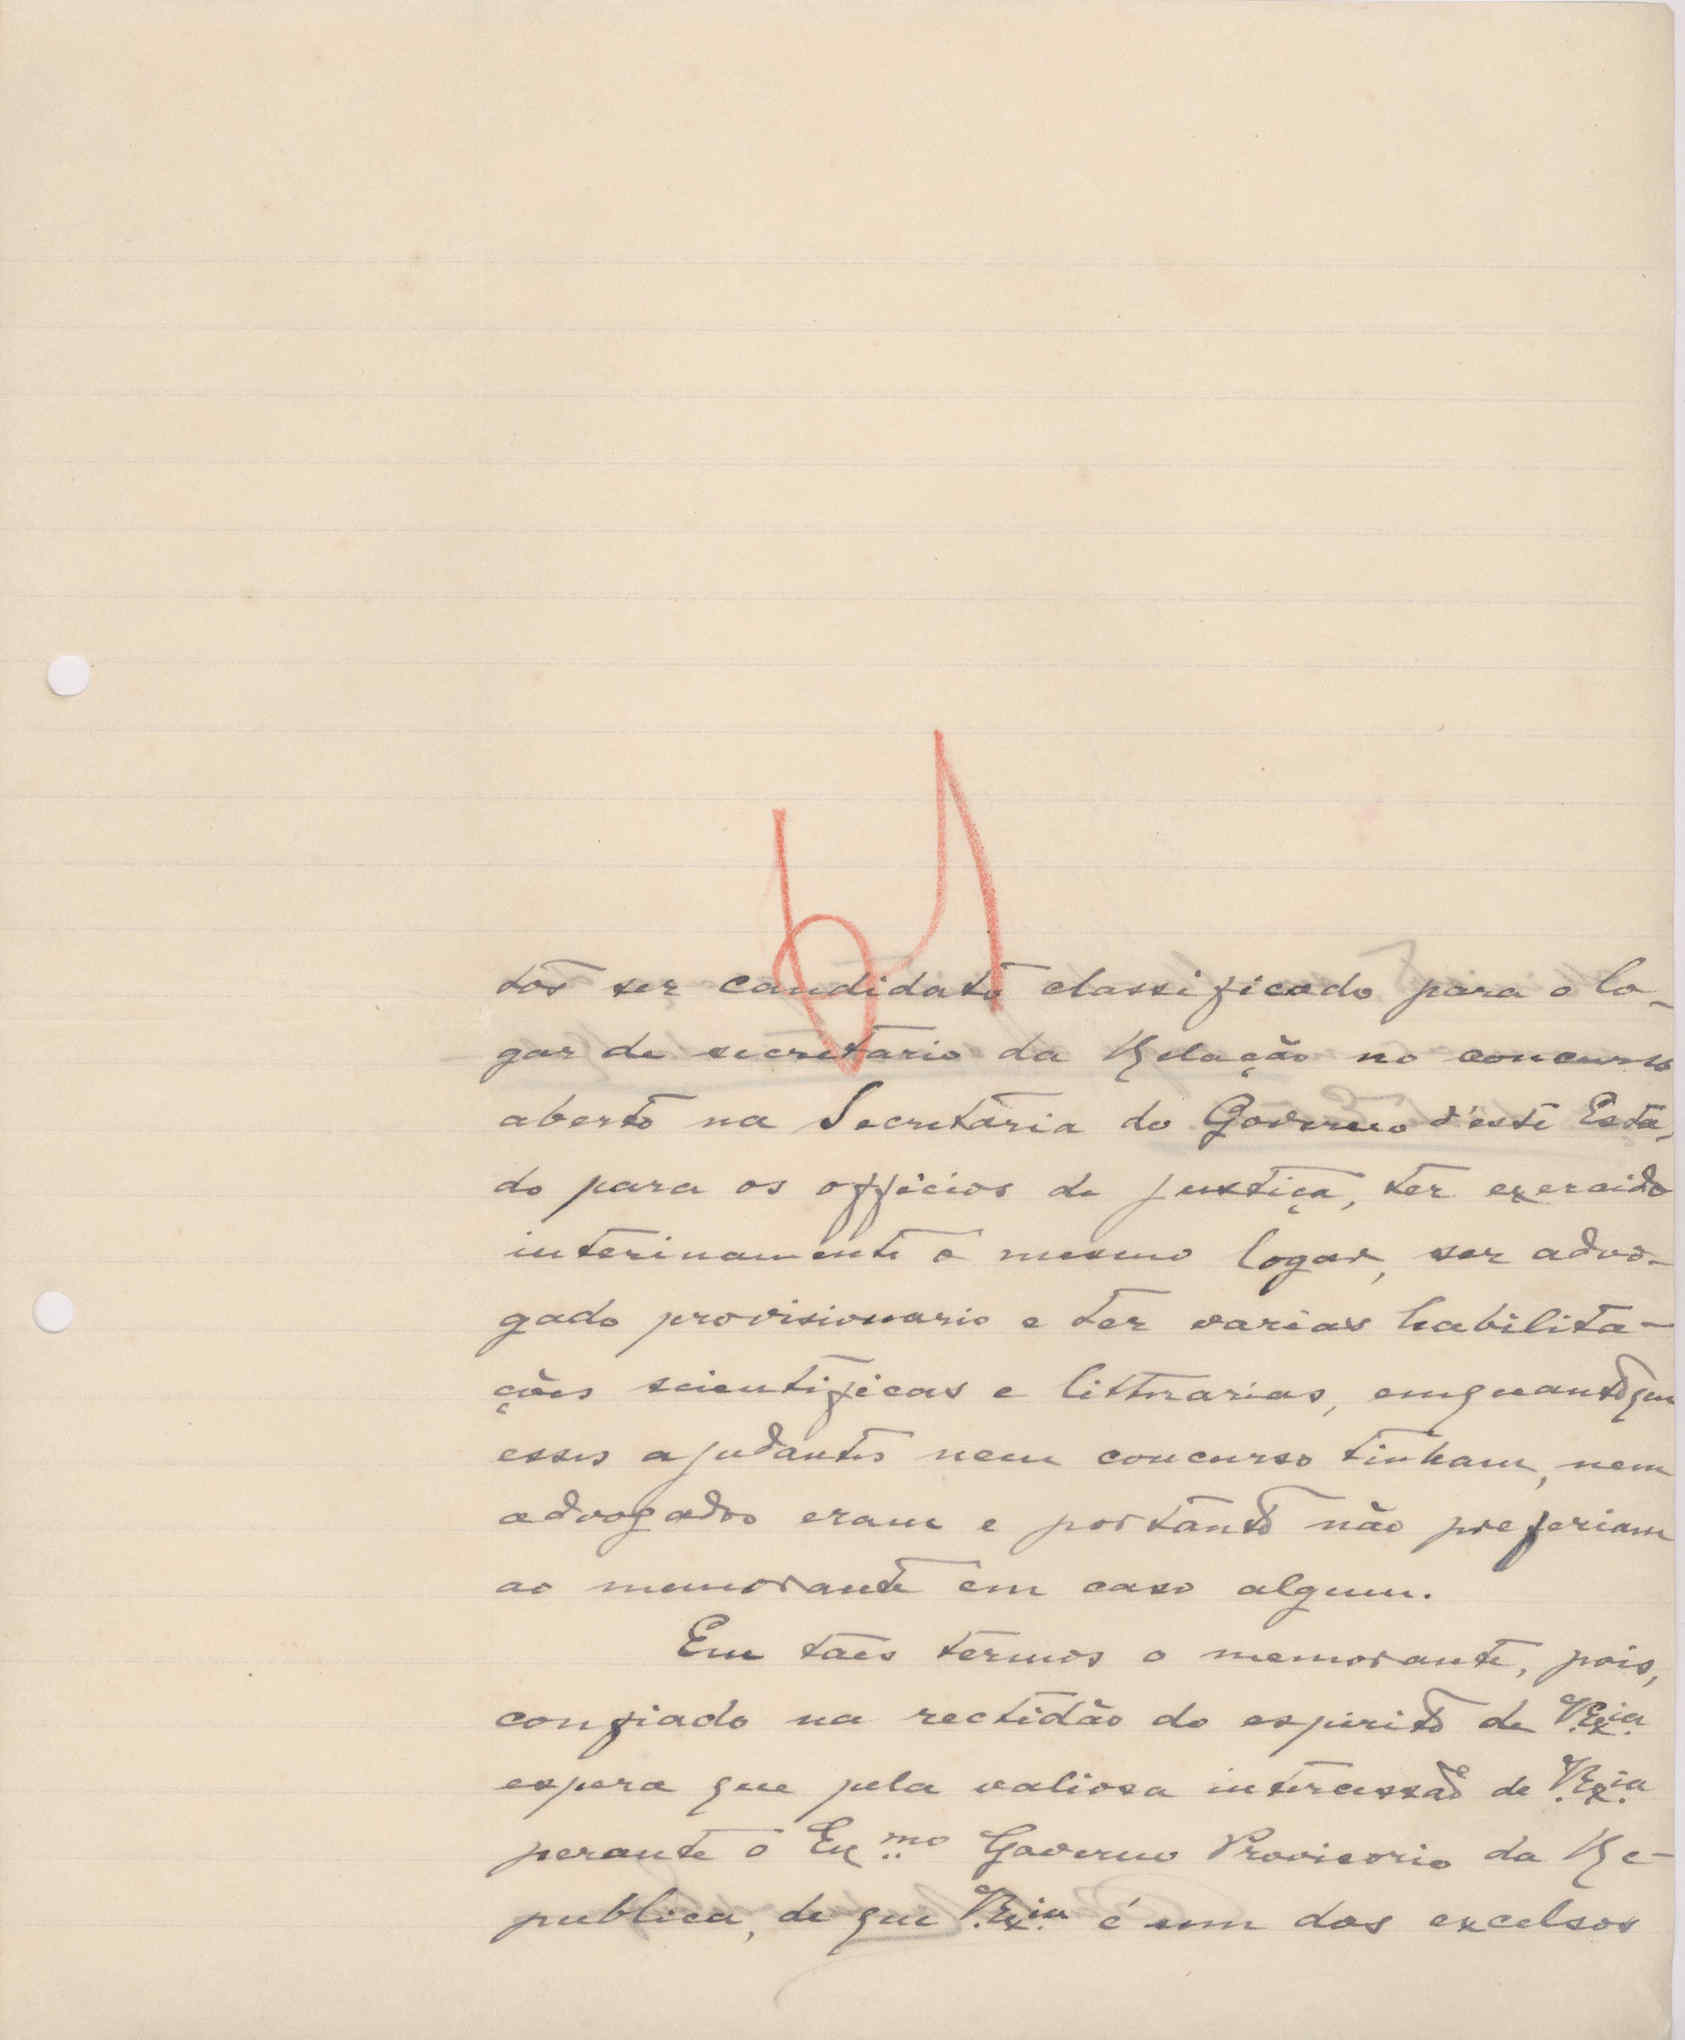 tos ser candidato classificado para o lo-
gar de secretario da Relação no concurso
aberto na Secretaria do Governo d'este Esta-
do para os officios de justiça, ter exercido
interinamente o mesmo logar, ser advo-
gado provisionario e ter varias habilita-
ções scientificas e litterarias, emquanto que
esses ajudantes nem concurso tinham, nem
advogados eram e portanto não preferiam
ao memorante em caso algum.
Em taes termos o memorante, pois,
confiado na rectidão do espirito de V. Ex.ia
espera que pela valiosa intercessão de V. Ex.ia
perante o Ex.mo Governo Provisorio da Re-
publica, de que V. Ex.ia é um dos excelsos